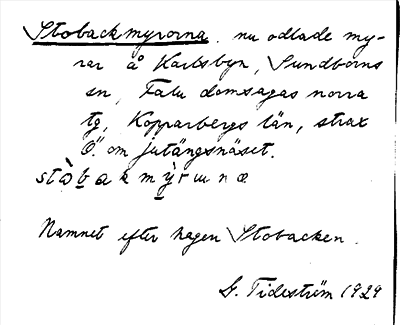 Stobackmyrorna. nu odlade my-
rar å Karlsbyn, Sundborns
sn, Falu domsagas norra
tg, Kopparbergs län, strax
Ö. om jutängsnäset.
Namnet efter hagen Stobacken.
G. Tideström 1929